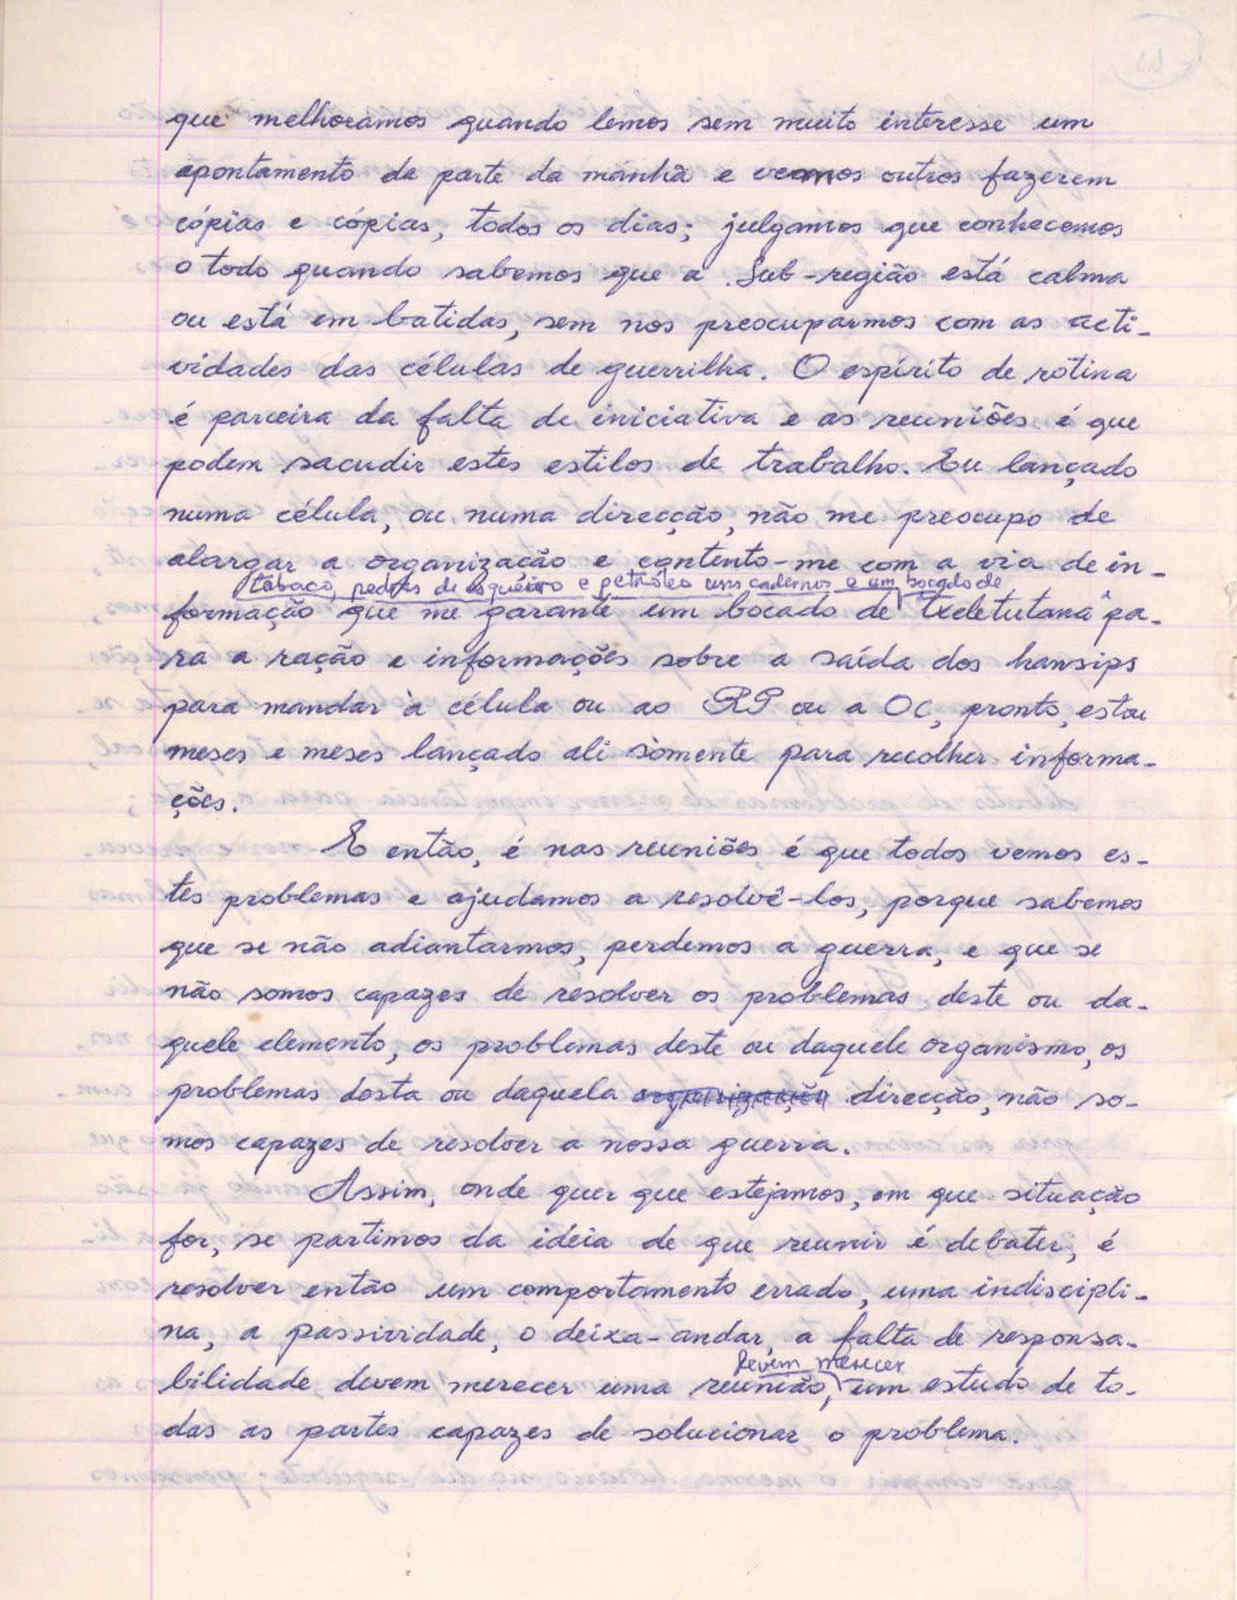 que melhoramos quando lemos sem muito interesse um
apontamento da parte da manhã e vemos outros fazerem
cópias e cópias, todos os dias; julgamos que conhecemos
o todo quando sabemos que a Sub-região está calma
ou está em batidas, sem nos preocuparmos com as acti-
vidades das células de guerrilha. O espírito de rotina
é parceira da falta de iniciativa e as reuniões é que
podem sacudir estes estilos de trabalho. Eu lançado
numa célula, ou numa direcção, não me preocupo de
alargar a organização e contento-me com a via de in-
tabaco, pedras de isqueiro e petróleo uns cadernos e um bocado de
formação que me garante um bocado de "txeletutana" pa-
ra a ração e informações sobre a saída dos hansips
para mandar à célula ou ao RP ou a OC, pronto, estou
meses e meses lançado ali sòmente para recolher informa-
ções.
E então, é nas reuniões é que todos vemos es-
tes problemas e ajudamos a resolvê-los, porque sabemos
que se não adiantarmos, perdemos a guerra, e que se
não somos capazes de resolver os problemas deste ou da-
quele elemento, os problemas deste ou daquele organismo, os
problemas desta ou daquela organização direcção, não so-
mos capazes de resolver a nossa guerra.
Assim, onde quer que estejamos, em que situação
for, se partimos da idéia de que reunir é debater, é
resolver então um comportamento errado, uma indiscipli-
na, a passividade, o deixa-andar, a falta de responsa-
devem merecer
bilidade devem merecer uma reunião, um estudo de to-
das as partes capazes de solucionar o problema.